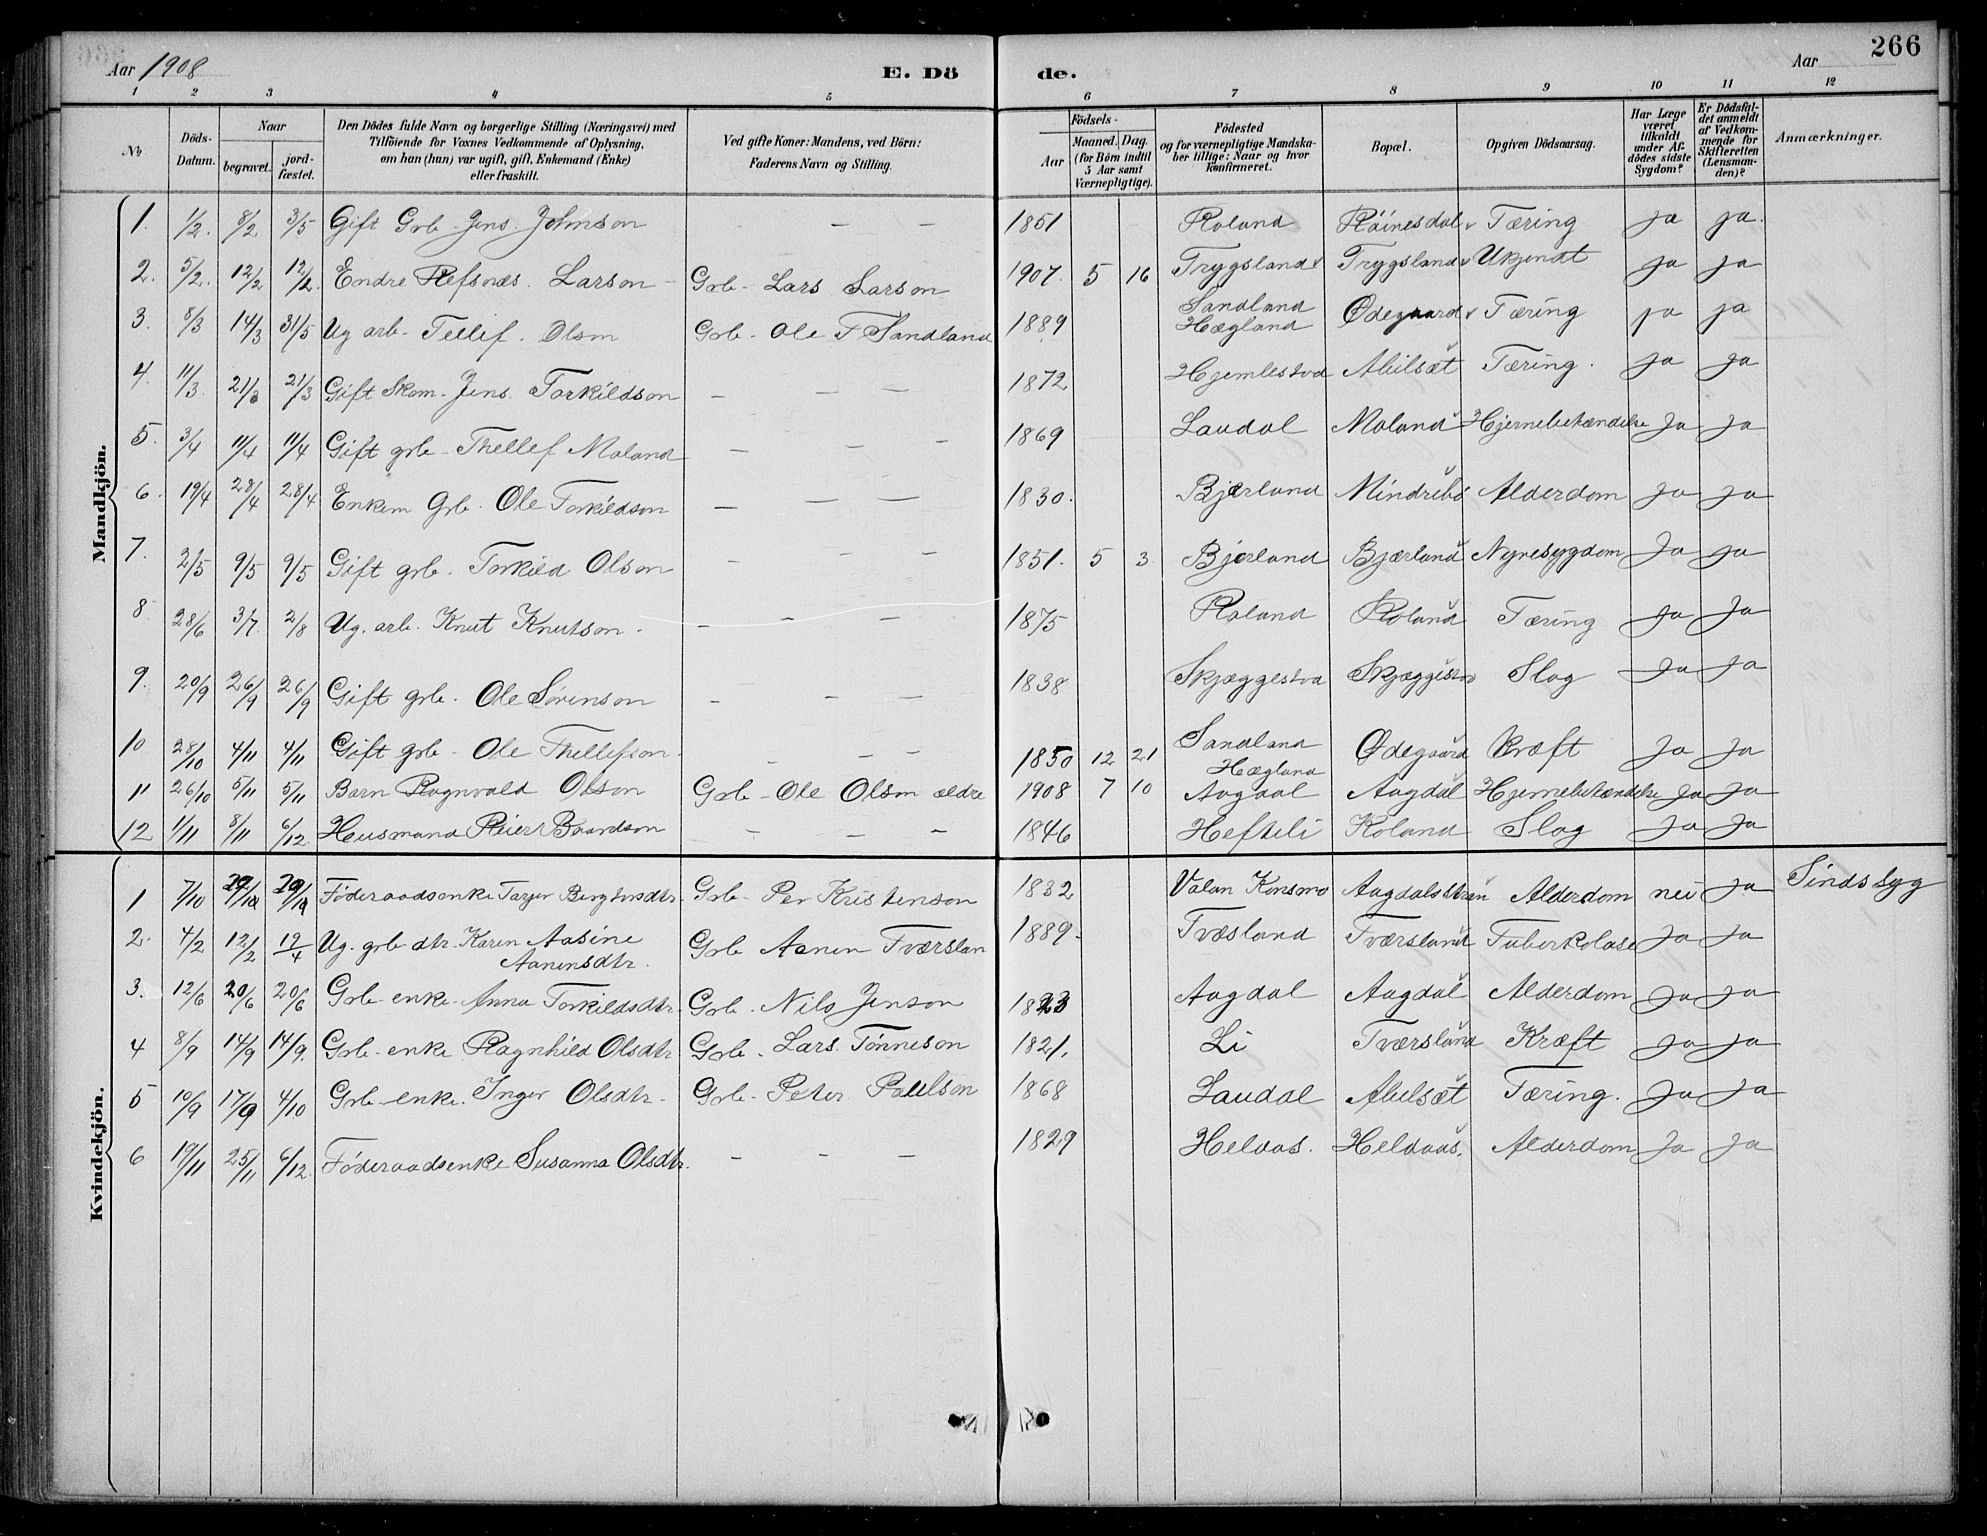 Aar 1908
E. Dö
de.
Aar
266
1 2 3 4 5 6 7 8 9 10 11 12
No
Döds-Datum.
Naar
begravet.
jord-fæstet.
Den Dödes fulde Navn og borgerlige Stilling (Næringsvei) med
Tilföiende for Voxnes Vedkommende af Oplysning,
om han (hun) var ugift, gift, Enkemand (Enke)
eller fraskilt.
Ved gifte Koner: Mandens, ved Börn:
Faderens Navn og Stilling.
Födsels-
Aar
Maaned. Dag.
(for Börn indtil
5 Aar samt
Værnepligtige).
Födested
og for værnepligtige Mandska-
ber tillige: Naar og hvor
Konfirmeret.
Bopæl.
Opgiven Dödsaarsag.
Har Læge
været
tilkaldt
under Af-
dödes sidste
Sygdom?
Er Dödsfal-
det anmeldt
af Vedkom-
mende for
Skifteretten
(Lensman-
den)?
Anmærkninger.
Mandkjön.
1. 1/2. 8/2 3/5 Gift Grb. Jens Johnson — — 1851 Roland Röinesdal Tæring ja ja.
2. 5/2. 12/2 12/2. Endre Refsnæs. Larson — Grb - Lars Larson 1907. 5 16 Trygsland Trygsland Ukjendt ja ja
3. 8/3 14/3 31/5 Ug arb - Tellef. Olson Grb - Ole T Sandland 1889 Sandland Hægland Ödegaard Tæring ja ja
4. 11/3. 21/3 21/3 Gift Skom - Jens. Torkildson — — — 1872 Hjemlestvd Abilsæt Tæring. ja ja
5. 3/4 11/4 11/4 Gift grb - Thellef Moland — — — 1869 Laudal Moland Hjernebetændelse Ja Ja
6. 19/4 28/4 28/4 Enkem Grb. Ole Torkildson — — — 1830. Bjærland Mindrebö Alderdom Ja Ja
7. 2/5 9/5 9/5 Gift grb. Torkild Olson — — — 1851. 5 3 Bjerland Bjærland Nyresygdom Ja ja
8 28/6 3/7. 2/8 Ug. arb. Knut Knutson. — — — 1875 Roland Roland Tæring Ja Ja
9. 20/9 26/9 26/9 Gift grb. Ole Sörenson — — — 1838 Skjæggestva Skjæggestvd Slag Ja Ja
10 28/10 4/11 4/11 Gift grb - Ole Thellefson. — — — 1850 12 21 Sandland Hægland Ödegaard Kræft Ja Ja
11 26/10 5/11 5/11 Barn Ragnvald Olson Grb - Ole Olson ældre 1908 7 10 Aagdal Aagdal Hjernebetændelse Ja Ja
12 1/11 8/11 6/12. Husmand Reier Baardson — — — 1846 Hefteli Roland Slag Ja Ja
Kvindekjön.
1 7/10 Föderaadsenke Tarjer Bergtorsdtr. Grb - Per Kristenson 1832 Valan Konsmo Alderdom nei Ja Sindssyg
2. 4/2 12/2 19/4 Ug. grb dtr. Karen Aasine Aanensdtr. Grb Aanen Tværslan 1889. Tvæsland Tværsland Tuberkolose Ja Ja
3. 12/6 20/6 20/6 Grb - enke - Anna Torkildsdtr. Grb. Nils Jenson 1823 Aagdal Aagdal Alderdom Ja Ja
4 8/9 14/9 14/9. Grb - enke Ragnhild Olsdtr Grb. Lars Tönneson 1821. Li Tværsland Kræft Ja Ja
5 10/9 17/9 4/10 Grb - enke. Inger Olsdtr - Grb - Peter Paulson 1868 Laudal Abilsæt Tæring. Ja Ja
6 19/11 25/11 6/12. Föderaadsenke Susanna Olsdtr. — — — 1829 Heldaas. Heldaas. Alderdom Ja Ja